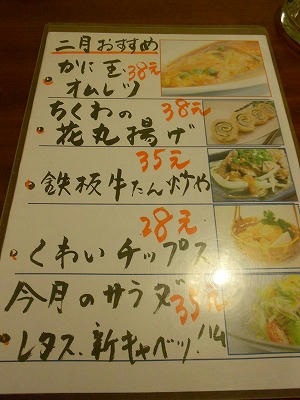 二月おすすめ
かに玉 38元
オムレツ
ちくわの 38元
花丸揚げ
35元
鉄板牛たん炒や
28元
くわいチップス
今月のサラダ 35元
レタス、新キャベツ!ハム